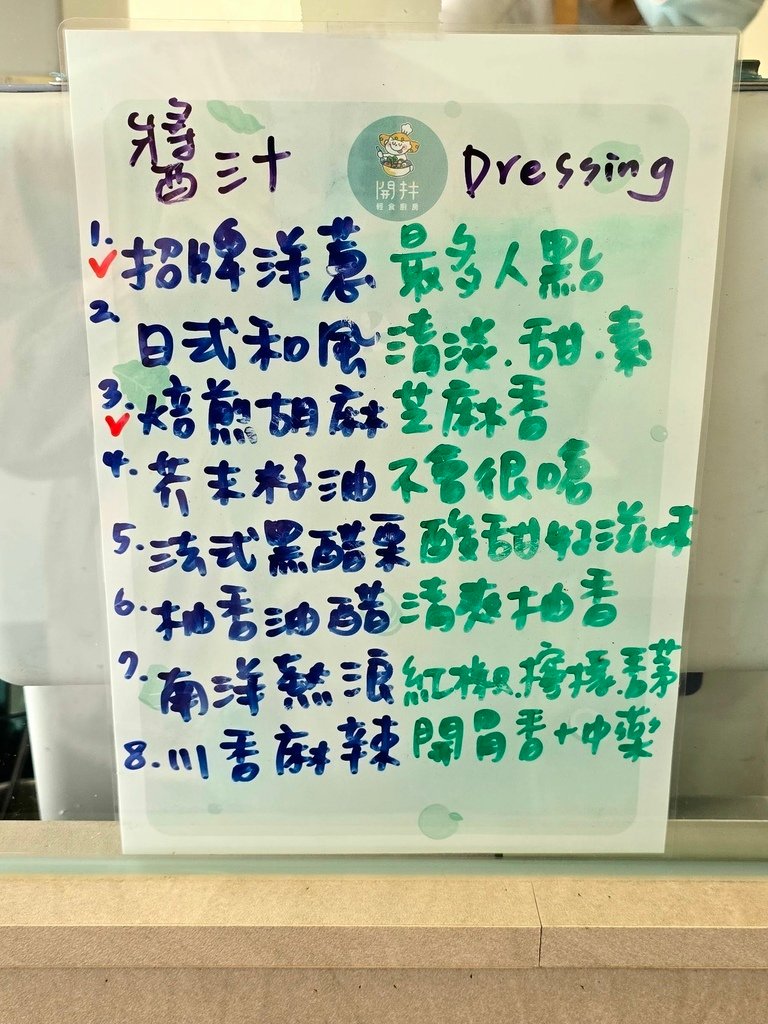 醬汁 開拌 輕食廚房 Dressing
1. 招牌洋蔥 最多人點
2. 日式和風 清淡.甜.素
3. 焙煎胡麻 芝麻香
4. 芥末籽油 不會很嗆
5. 法式黑醋栗 酸甜好滋味
6. 柚香油醋 清爽柚香
7. 南洋熱浪 紅椒.檸檬.香茅
8. 川香麻辣 開胃香+中藥